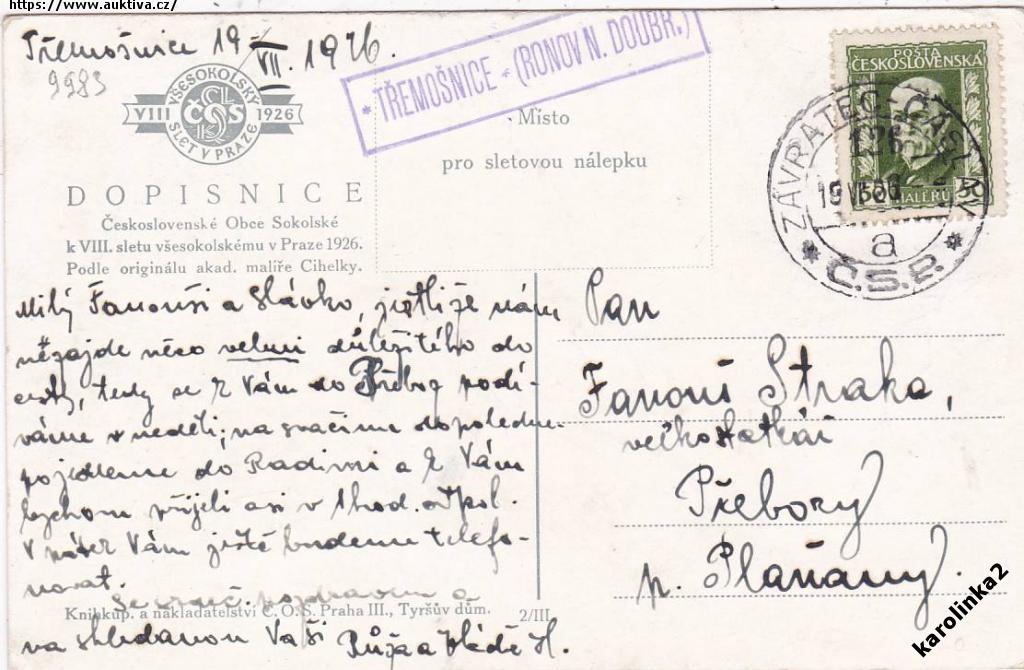 https://www.auktiva.cz/
Třemošnice 19/VII. 1926.
9983
VŠESOKOLSKÝ
VIII ČOS 1926
SLET V PRAZE
TŘEMOŠNICE - (RONOV N. DOUBR.)
Místo
pro sletovou nálepku
POŠTA
ČESKOSLOVENSKÁ
50 HALÉŘŮ 50
ZÁVRATEC-ČÁSLAV
19 VII
a
* Č.S.P. *
DOPISNICE
Československé Obce Sokolské
k VIII. sletu všesokolskému v Praze 1926.
Podle originálu akad. malíře Cihelky.
Milý Fanouši a Slávko, jestliže nám
nezajde něco velmi důležitého do
cesty, tedy se k Vám do Přebor podí-
váme v neděli; na svačinu dopoledne
pojedeme do Radimi a k Vám
bychom přijeli asi v 1 hod. odpol.
V pátek Vám ještě budeme telefo-
novat.
Se srdeč. pozdravem a
na shledanou Vaši Růža a Vláďa H.
Knihkup. a nakladatelství Č. O. S. Praha III., Tyršův dům.
2/III.
Pan
Fanouš Straka,
velkostatkář
Přebory
p. Plaňany.
karolinka2